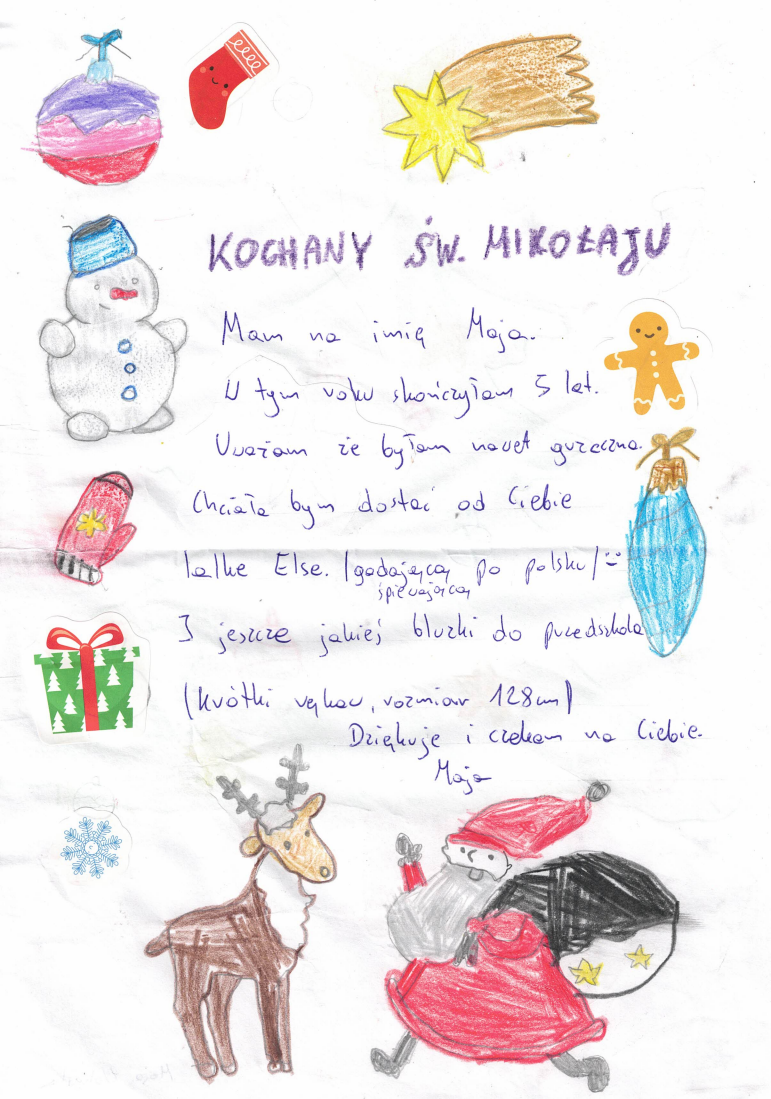 KOCHANY ŚW. MIKOŁAJU
Mam na imię Maja.
W tym roku skończyłam 5 lat.
Uważam że byłam nawet grzeczna.
Chciała bym dostać od Ciebie
lalke Else. (gadającą po polsku) :)
śpiewającą
I jeszcze jakiejś bluzki do przedszkola
(krótki rękaw, rozmiar 128cm)
Dziękuje i czekam na Ciebie.
Maja